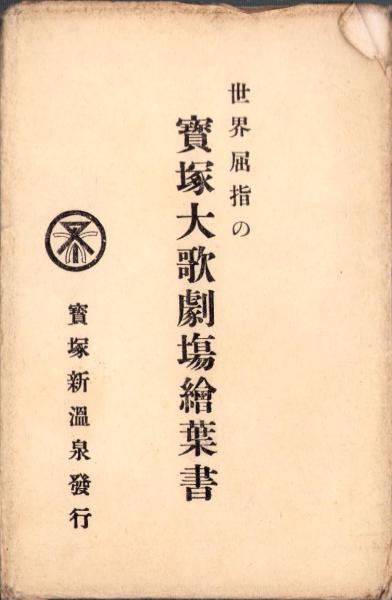 世界屈指の
寳塚大歌劇塲繪葉書
寳塚新温泉發行